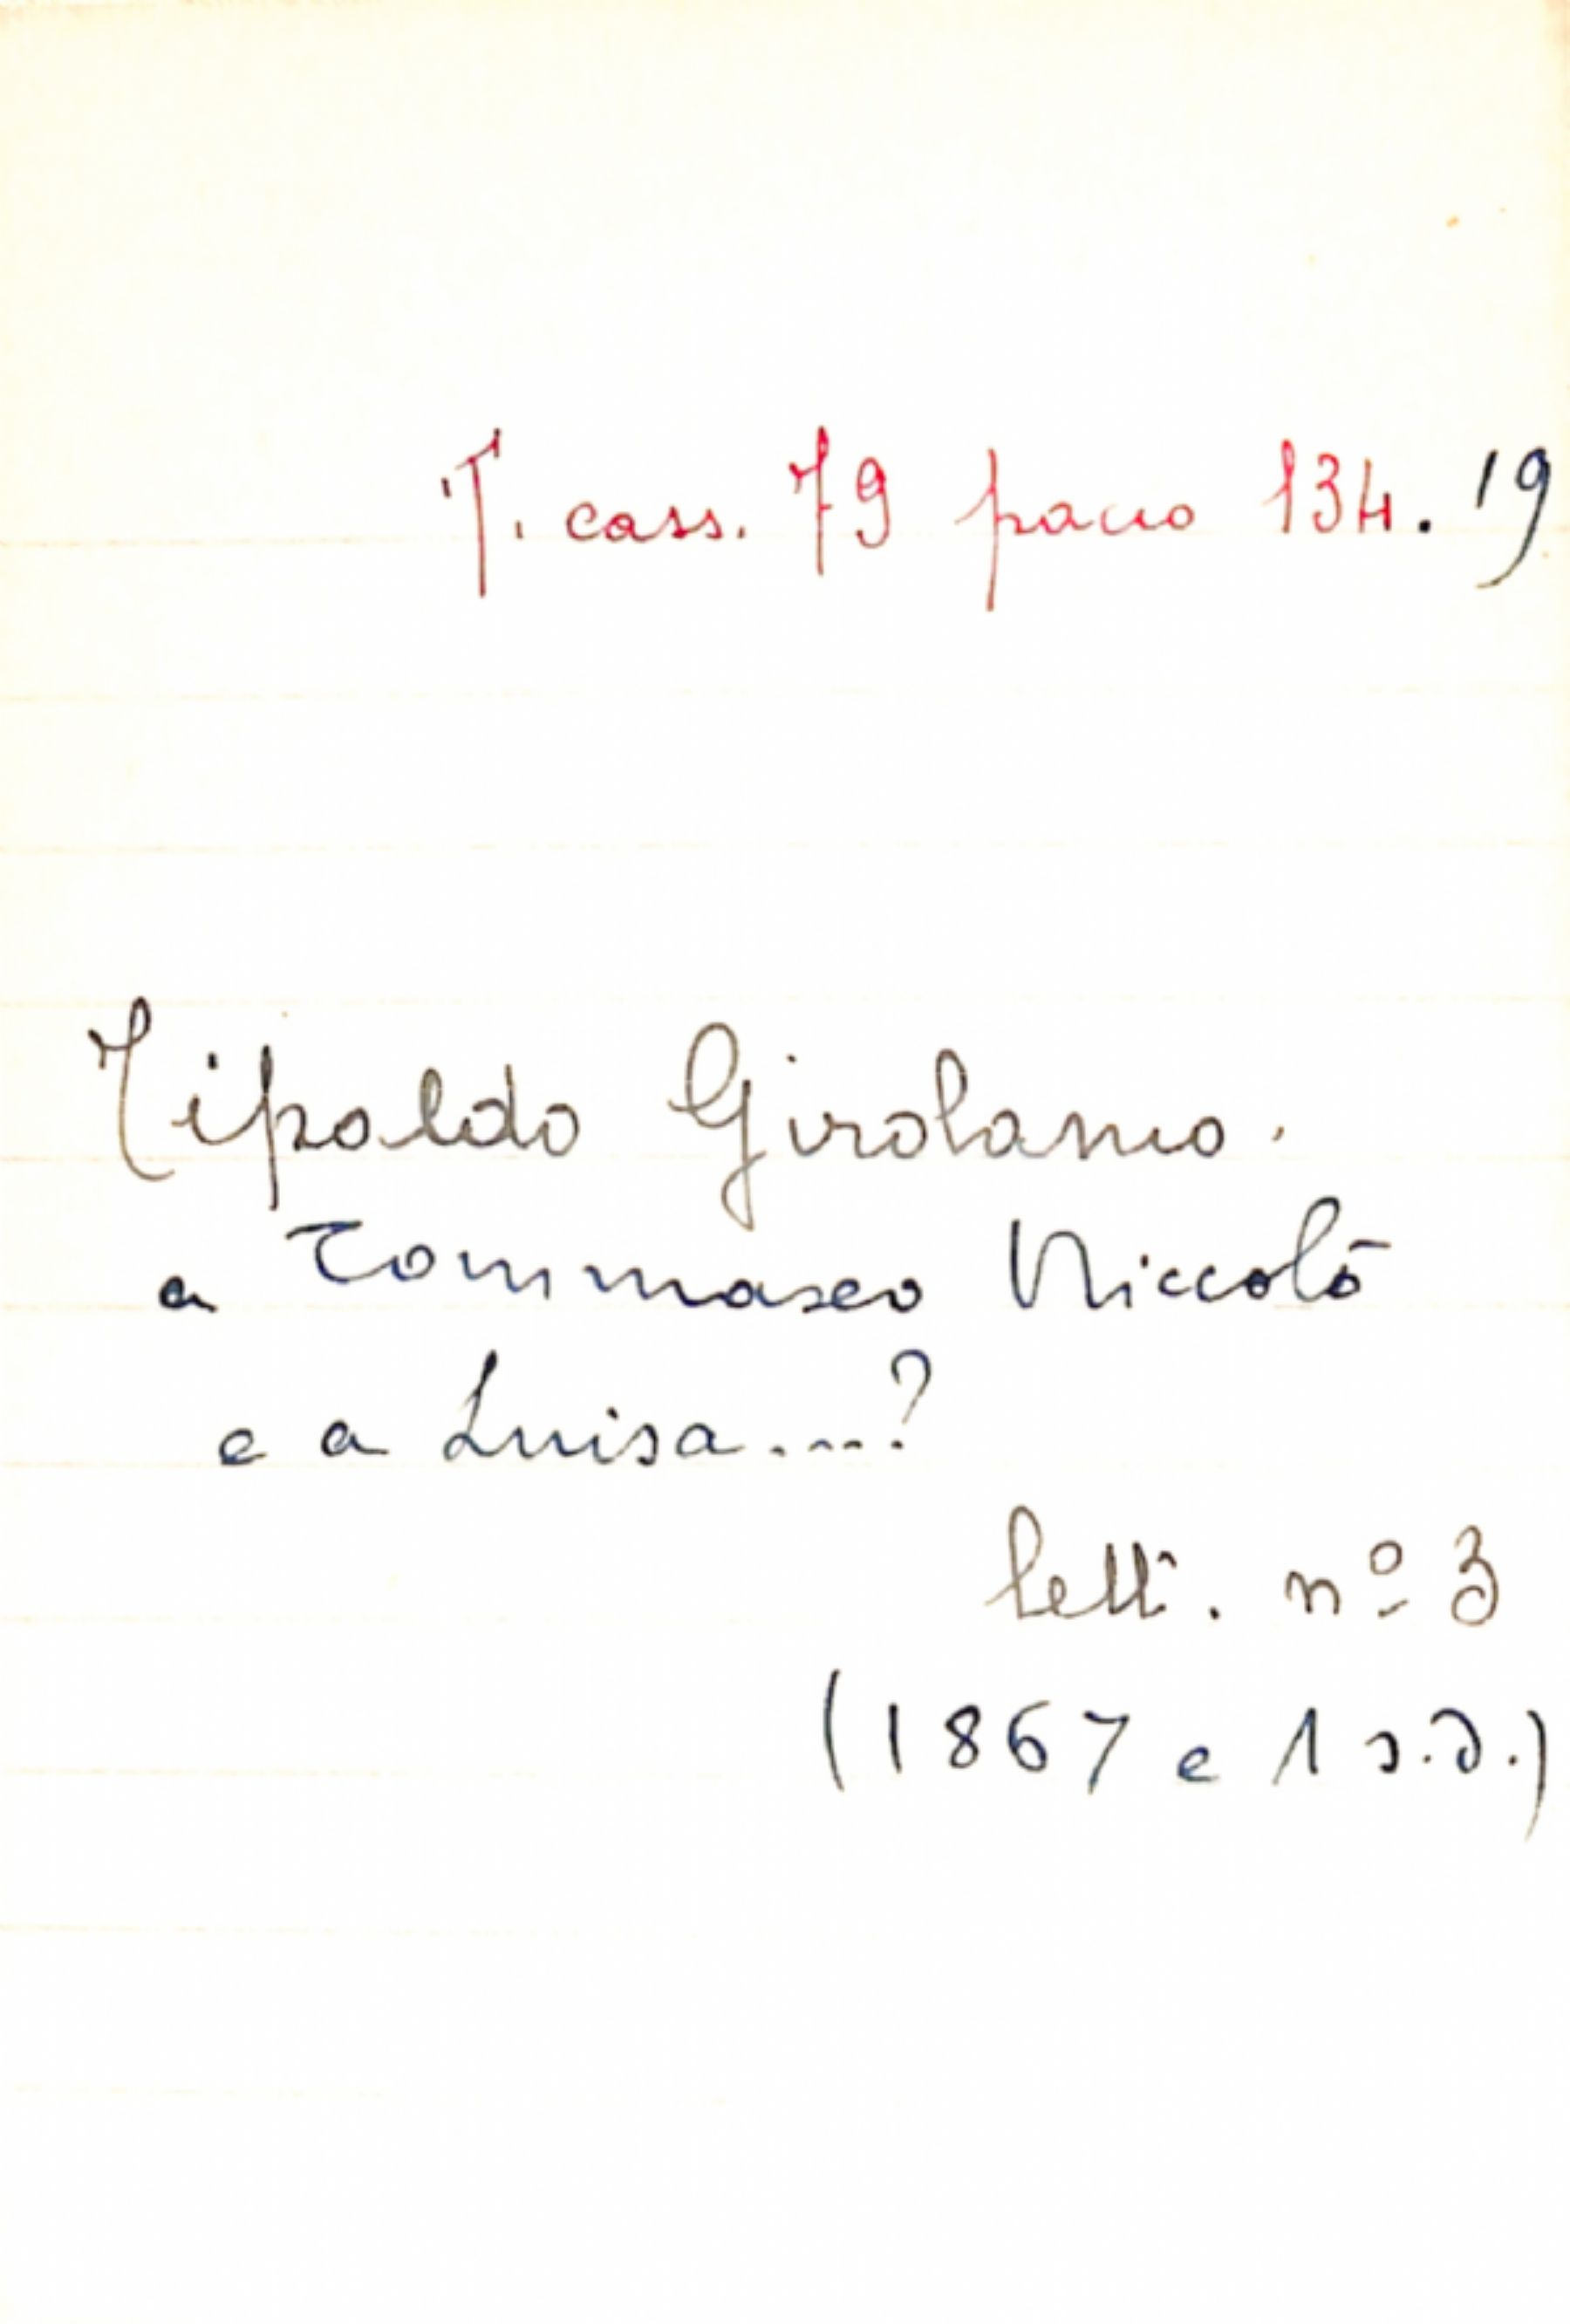 T. cass. 79 pacco 134. 19
Tipaldo Girolamo.
a Tommaseo Niccolò
e a Luisa....?
lett. nº 3
(1867 e 1 s.d.)